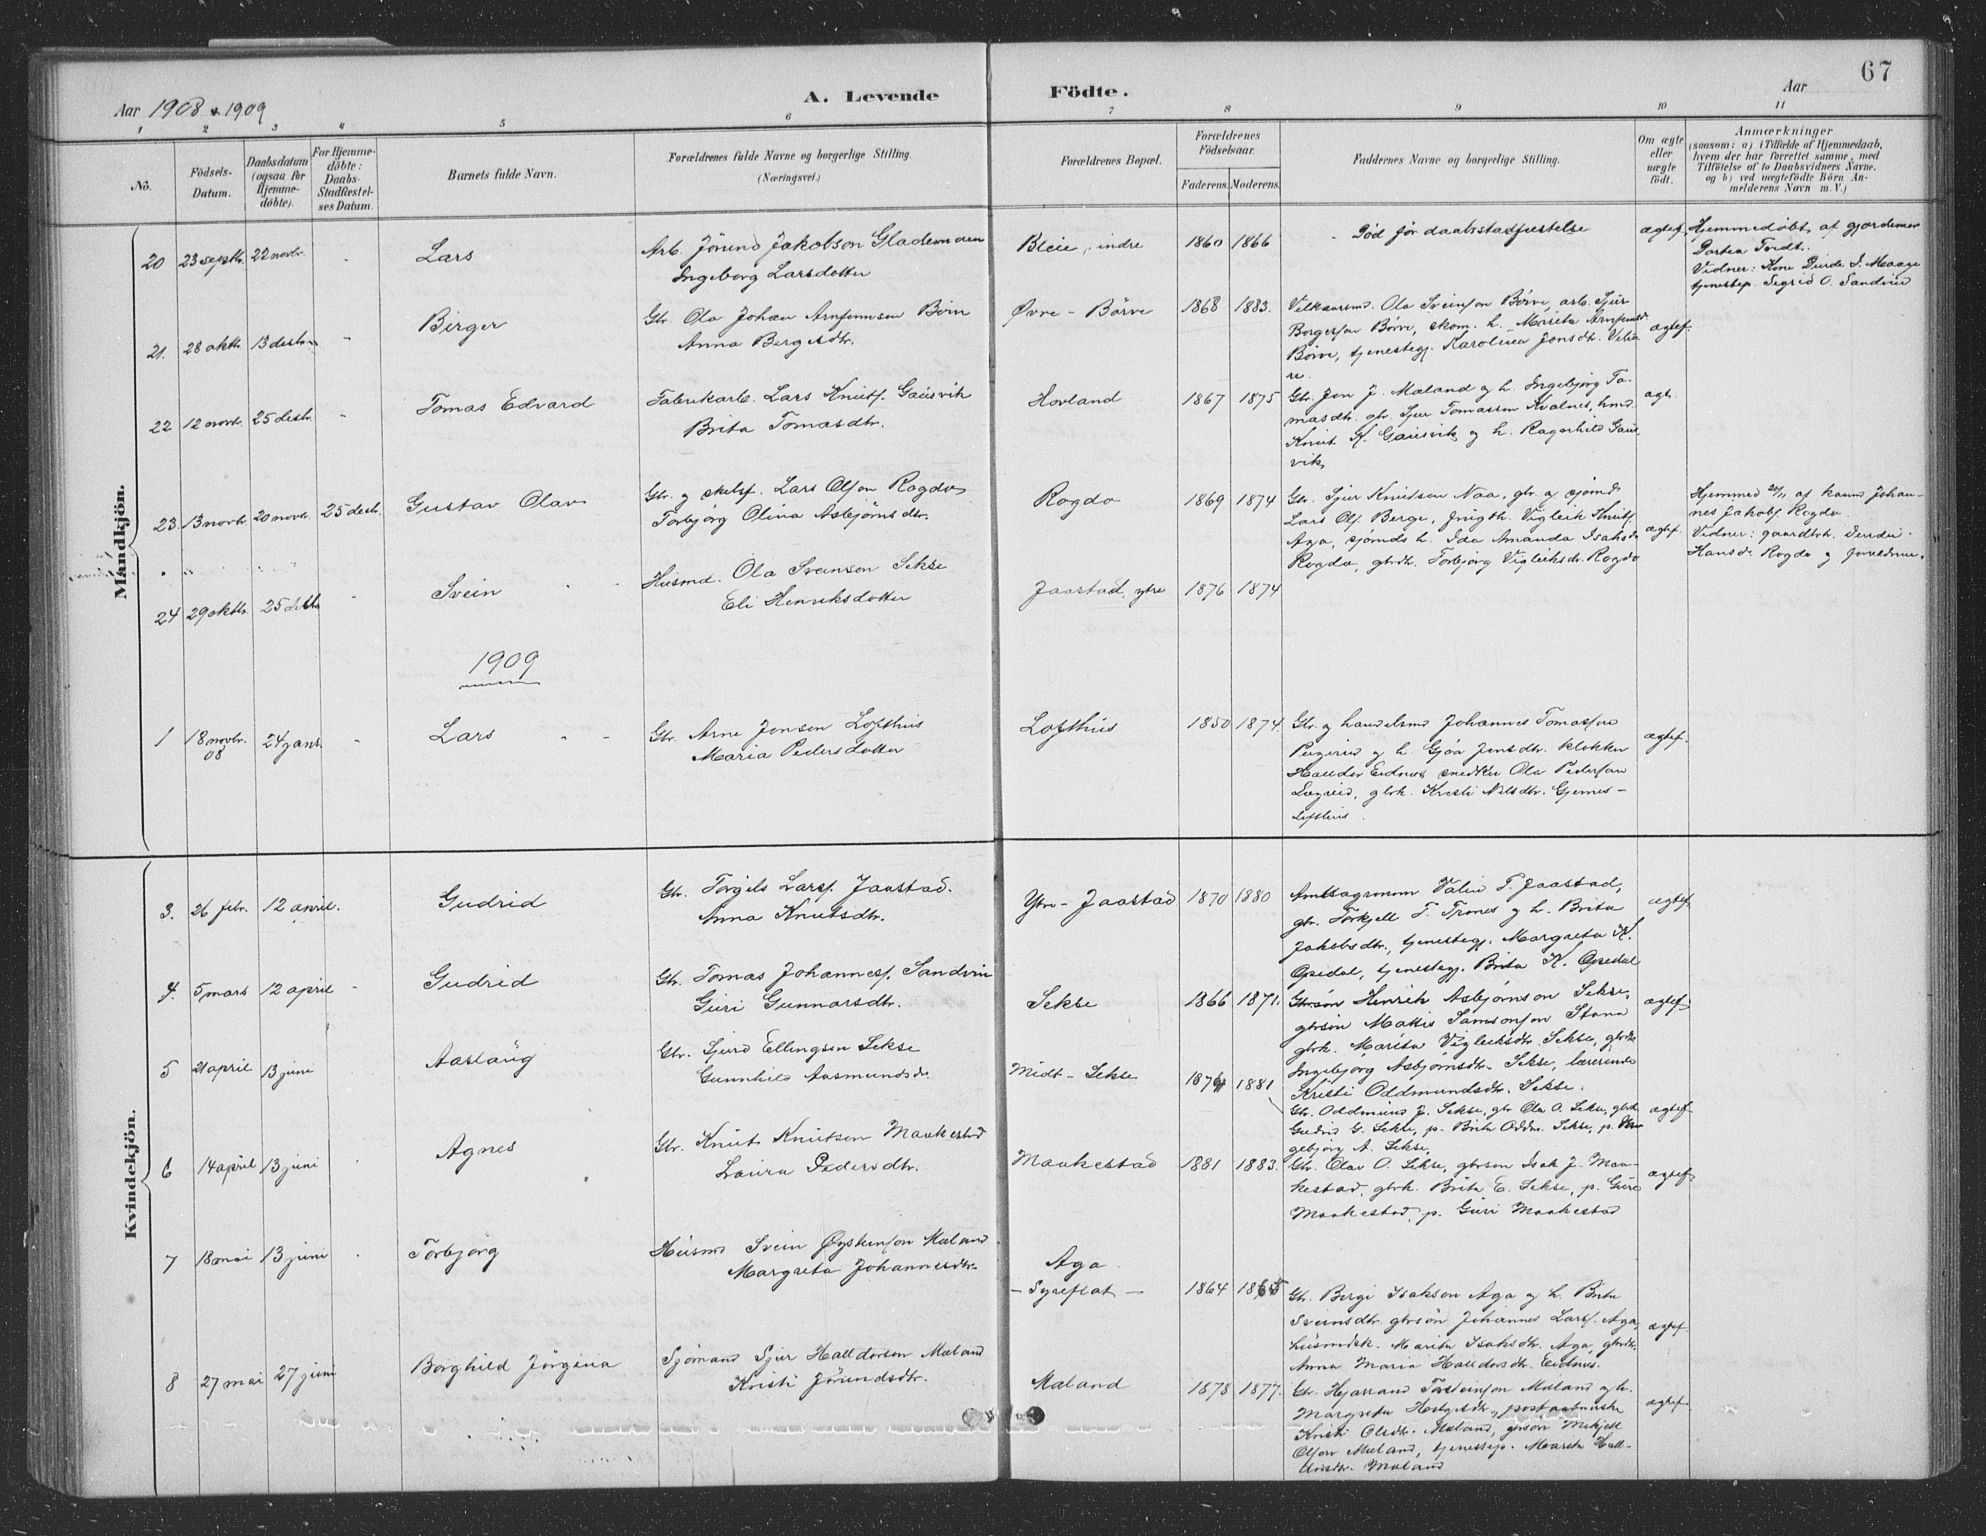 67
Aar 1908 & 1909
A. Levende Födte.
Aar
1 2 3 4 5 6 7 8 9 10 11
No.
Födsels-Datum.
Daabsdatum (ogsaa for Hjemme-döbte).
For Hjemme-döbte: Daabs-Stadfæstel-ses Datum.
Barnets fulde Navn.
Forældrenes fulde Navne og borgerlige Stilling. (Næringsvei.)
Forældrenes Bopæl.
Forældrenes Födselsaar.
Faderens. Moderens.
Faddernes Navne og borgerlige Stilling.
Om ægte eller uægte födt.
Anmærkninger
(saasom: a) i Tilfælde af Hjemmedaab,
hvem der har forrettet samme, med
Tilföielse af to Daabsvidners Navne,
og b) ved uægtefödte Börn An-
melderens Navn m. V.)
Mandkjön.
20 23 septbr. 22 novbr. Lars
Arb. Jörund Jakobson
Ingeborg Larsdotter
Bleie, indre 1860 1866
Död för daabsstadfæstelse
ægtef.
Hjemmedöbt af gjordemor
Dortea Tvedt.
Vidner: Kone Durde J. Maage
tjenestep. Segrid O. Sandvin
21. 28 oktbr. 13 desbr. Birger
Gbr. Ola Johan Arnfinnsen Börve
Anna Bergesdtr.
Övre-Börve 1868 1883.
Velkaarsmd. Ola Sveinson Börve, arb. Sjur
Borgerson Börve, skom. h. Marita Arnfinnsd.
Börve, tjenestegj. Karolina Jonsdtr.
ægtef.
22 12 novbr. 25 desbr. Tomas Edvard
Fabrikarb. Lars Knutsf. Gausvik
Brita Tomasdtr.
Hovland 1867 1875
Gbr. Jon J. Mæland og h. Ingebjörg To-
masdtr. gbr. Sjur Tomassen Kvalnes, hmd.
Knut K. Gausvik og h. Ragnhild Gaus
vik
ægt.
23. 13 novbr. 20 novbr. 25 desbr. Gustav Olav
Gbr. og skolsf. Lars Olson Rogde
Torbjörg Olina Asbjörnsdtr.
Rogde 1869 1874
Gbr. Sjur Knutson Naa, gbr. og sjömd.
Lars Ols. Berge, Vigleik Knuts.
Aga, sjömds h. Ida Amanda Isaksd.
Rogde, gbrdt. Torbjörg Vigleiksdtr. Rogde
ægtef.
Hjemmed 20/11 af Johan-
nes Jakobs. Rogde.
Vidner: gaardbr.
Hansd. Rogde og foreldrene.
24 29 oktbr. 25 desbr. Svein
Husmd. Ola Sveinson Sekse
Eli Henriksdotter
Jaastad, ytre 1876 1874
1909
1 18 novbr. 08 24 jan. Lars
Gbr. Arne Jonsen Lofthus
Maria Pedersdotter
Lofthus 1850 1874.
Gbr. og handelsmd Johannes Tomassen
og h. Gjöa Jonsdtr. klokker
Halldor Eidnes, snedker Ola Pederson
Lægreid, gbrk. Kristi Nilsdtr. Gjernes-
Lofthus.
ægtef.
Kvindekjön.
3. 26 febr. 12 april. Gudrid
Gbr. Torgils Larsf. Jaastad.
Anna Knutsdtr.
Ytre-Jaastad 1870 1880
Amtsagronom T. Jaastad,
gbr. Torkjell T. Trones og h. Brita
Jakobsdtr., tjenestegj. Margreta K.
Opedal, tjenestegj. Brita K. Opedal
ægtef.
4. 5 mars 12 april Gudrid
Gbr. Tomas Johannesf. Sandvin
Guri Gunnarsdtr.
Sekse 1866 1871.
Gbrsön Henrik Asbjörnson Sekse,
gbrsön Mattis Samsonson Stana
gbrk. Marita Vigleiksdtr. Sekse, gbrdtr.
Ingebjörg Asbjörnsdtr. Sekse, lærerinde
Kristi Oddmundsdtr. Sekse.
ægtef.
5 21 april 13 juni Aaslaug
Gbr. Sjurd Ellingsen Sekse
Gunnhild Aasmundsdr.
Midt-Sekse 1874 1881
Gbr. Oddmund J. Sekse, gbr Ola O. Sekse, gbrk
Gudrid G. Sekse, p. Brita Oddm. Sekse, p. In
gebjörg A. Sekse.
ægtef.
6 14 april 13 juni Agnes
Gbr. Knut Knutsen Maakestad
Laura Pedersdtr.
Maakestad 1881 1883.
Gbr. Olav O. Sekse, gbrson Isak J. Maa-
kestad, gbrk. Brita E. Sekse, p. Guro
Maakestad, p. Guri Maakestad
ægtef.
7 18 mai 13 juni Torbjörg
Husmd Svein Öysteinson Mæland
Margreta Johannesdtr.
Aga
- Syreflot - 1864 1865
Gbr. Berge Isaksen Aga og h. Brita
Sveinsdtr. gbrsön Johannes Larsf. Aga,
husmdsk. Marita Isaksdtr. Aga, gbrdtr.
Anna Maria Halldorsdtr. Eidnes.
ægtef.
8 27 mai 27 juni Borghild Jörgina
Sjömand Sjur Halldorsen Mæland
Kristi Jörundsdtr.
Mæland 1878 1877.
Gbr. Hjarrand Torsteinson Mæland og h.
Margreta Helgesdtr., postaabnerske
Kristi Olsdtr. Mæland, gbrsön Mikjell
Olson Mæland, tjenestep. Marita Hall-
dorsdtr. Mæland
ægtef.